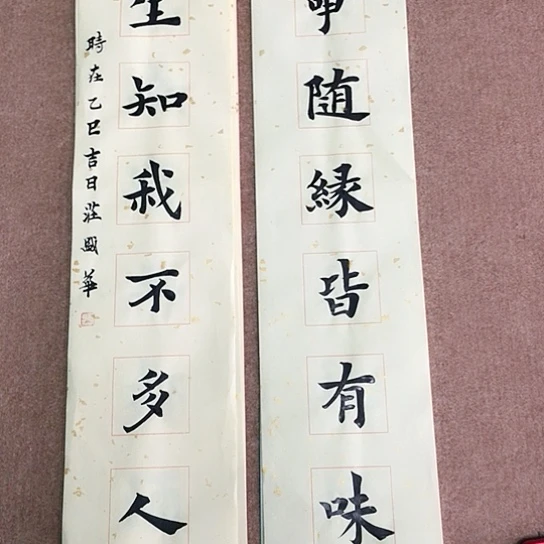 事随緣皆有味
生知我不多人
時在乙巳吉日莊國華